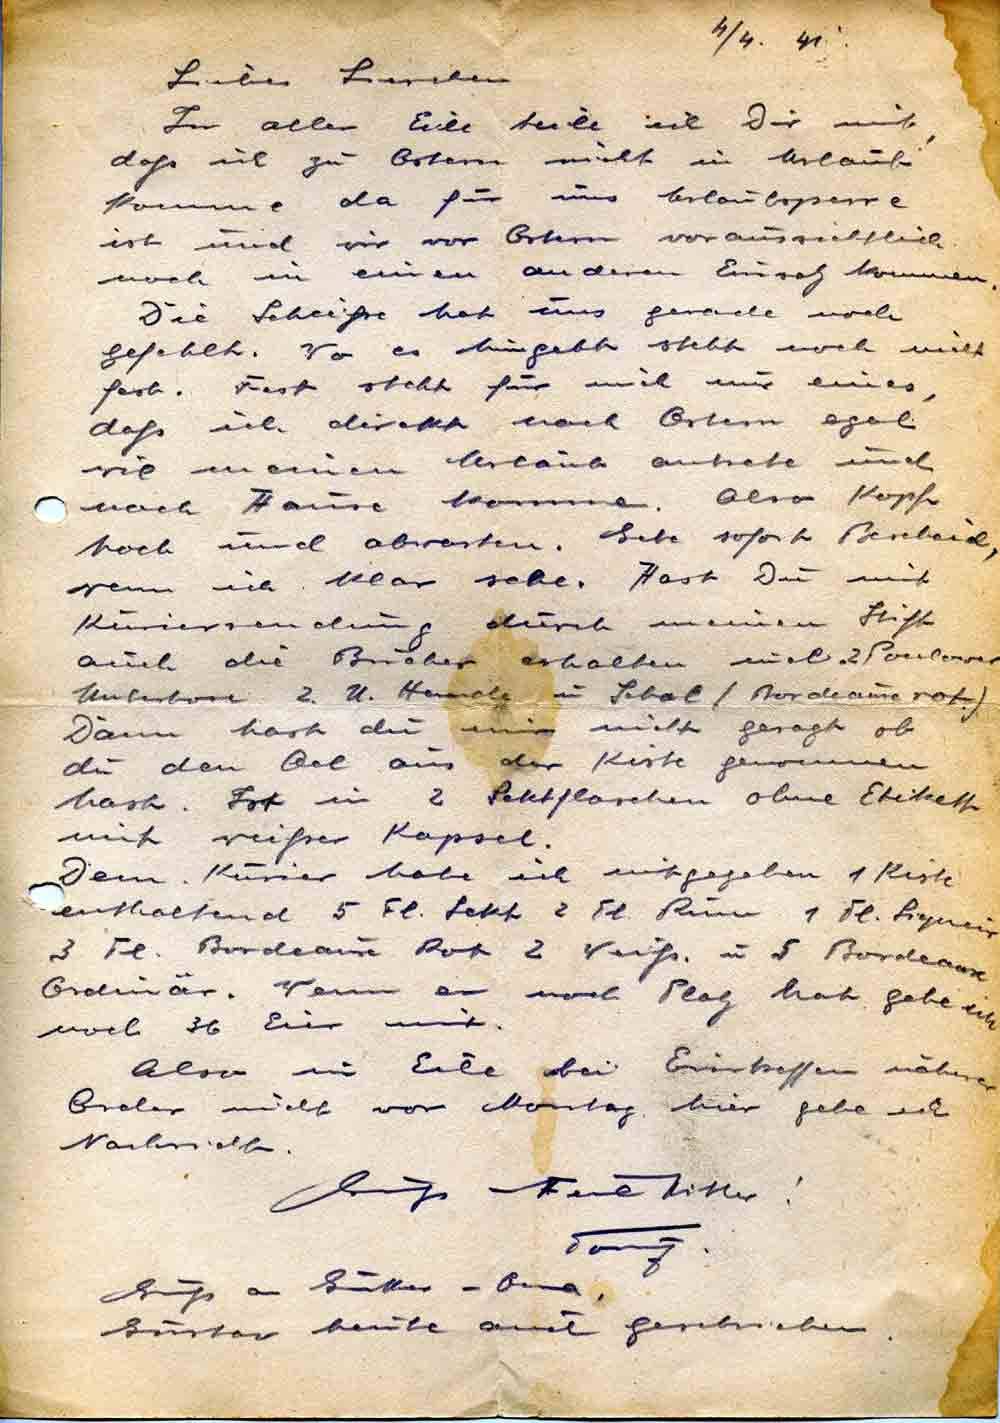 4/4. 41.
Liebes Lieschen
In aller Eile teile ich Dir mit,
daß ich zu Ostern nicht in Urlaub
komme da für uns Urlaubsperre
ist und wir vor Ostern voraussichtlich
noch in einen anderen Einsatz kommen.
Die Scheiße hat uns gerade noch
gefehlt. Wo es hingeht steht noch nicht
fest. Fest steht für mich nur eines,
daß ich direkt nach Ostern egal
wie meinen Urlaub antrete und
nach Hause komme. Also Kopf
hoch und abwarten. Gebe sofort Bescheid,
wenn ich klar sehe. Hast Du mit
Kuriersendung durch meinen
auch die Bücher erhalten incl. 2 Poulower
Unterhose 2. U. Hemde u Schal (Bordeaux rot.)
Dann hast du mir nicht gesagt ob
du den Oel aus der Kiste genommen
hast. Ist in 2 Sektflaschen ohne Etikett
mit weißer Kapsel.
Dem Kurier habe ich mitgegeben 1 Kiste
enthaltend 5 Fl. Sekt 2 Fl. Rum 1 Fl.
3 Fl. Bordeaux Rot 2 Weiß. u 5 Bordeaux
Ordinär. Wenn er noch Platz hat gebe ich
noch 36 Eier mit.
Also in Eile bei Eintreffen näherer
Order nicht vor Montag hier gebe ich
Nachricht.
Gruß Heil Hitler!
Gruß an Oma,
Gustav heute auch geschrieben.